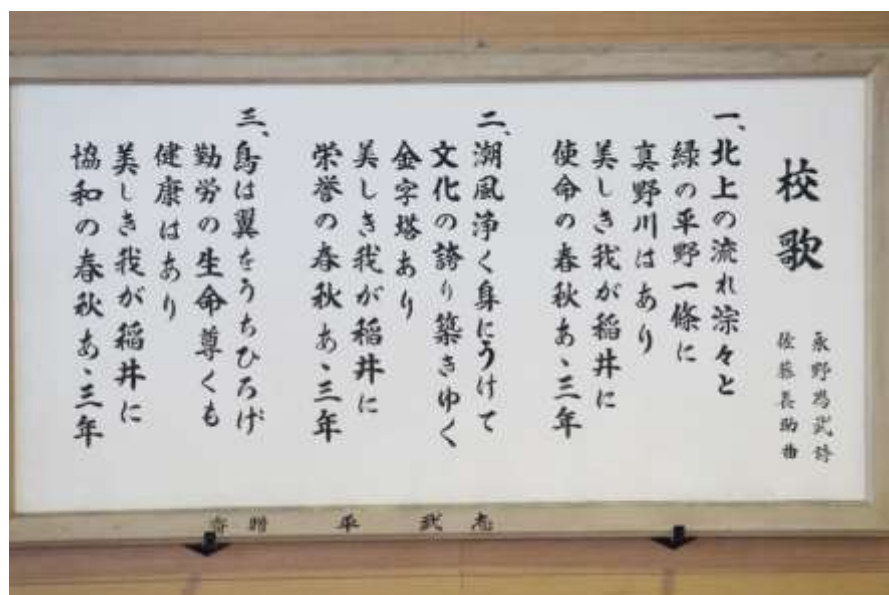 校歌
永野為武詩
佐藤長助曲
一、北上の流れ淙々と
緑の平野一條に
真野川はあり
美しき我が稲井に
使命の春秋あゝ三年
二、潮風浄く身にうけて
文化の誇り築きゆく
金字塔あり
美しき我が稲井に
栄誉の春秋あゝ三年
三、鳥は翼をうちひろげ
勤労の生命尊くも
健康はあり
美しき我が稲井に
協和の春秋あゝ三年
寄贈 平 武志